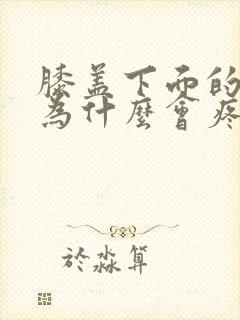 膝盖下面的
為什麼會疼
於淼算